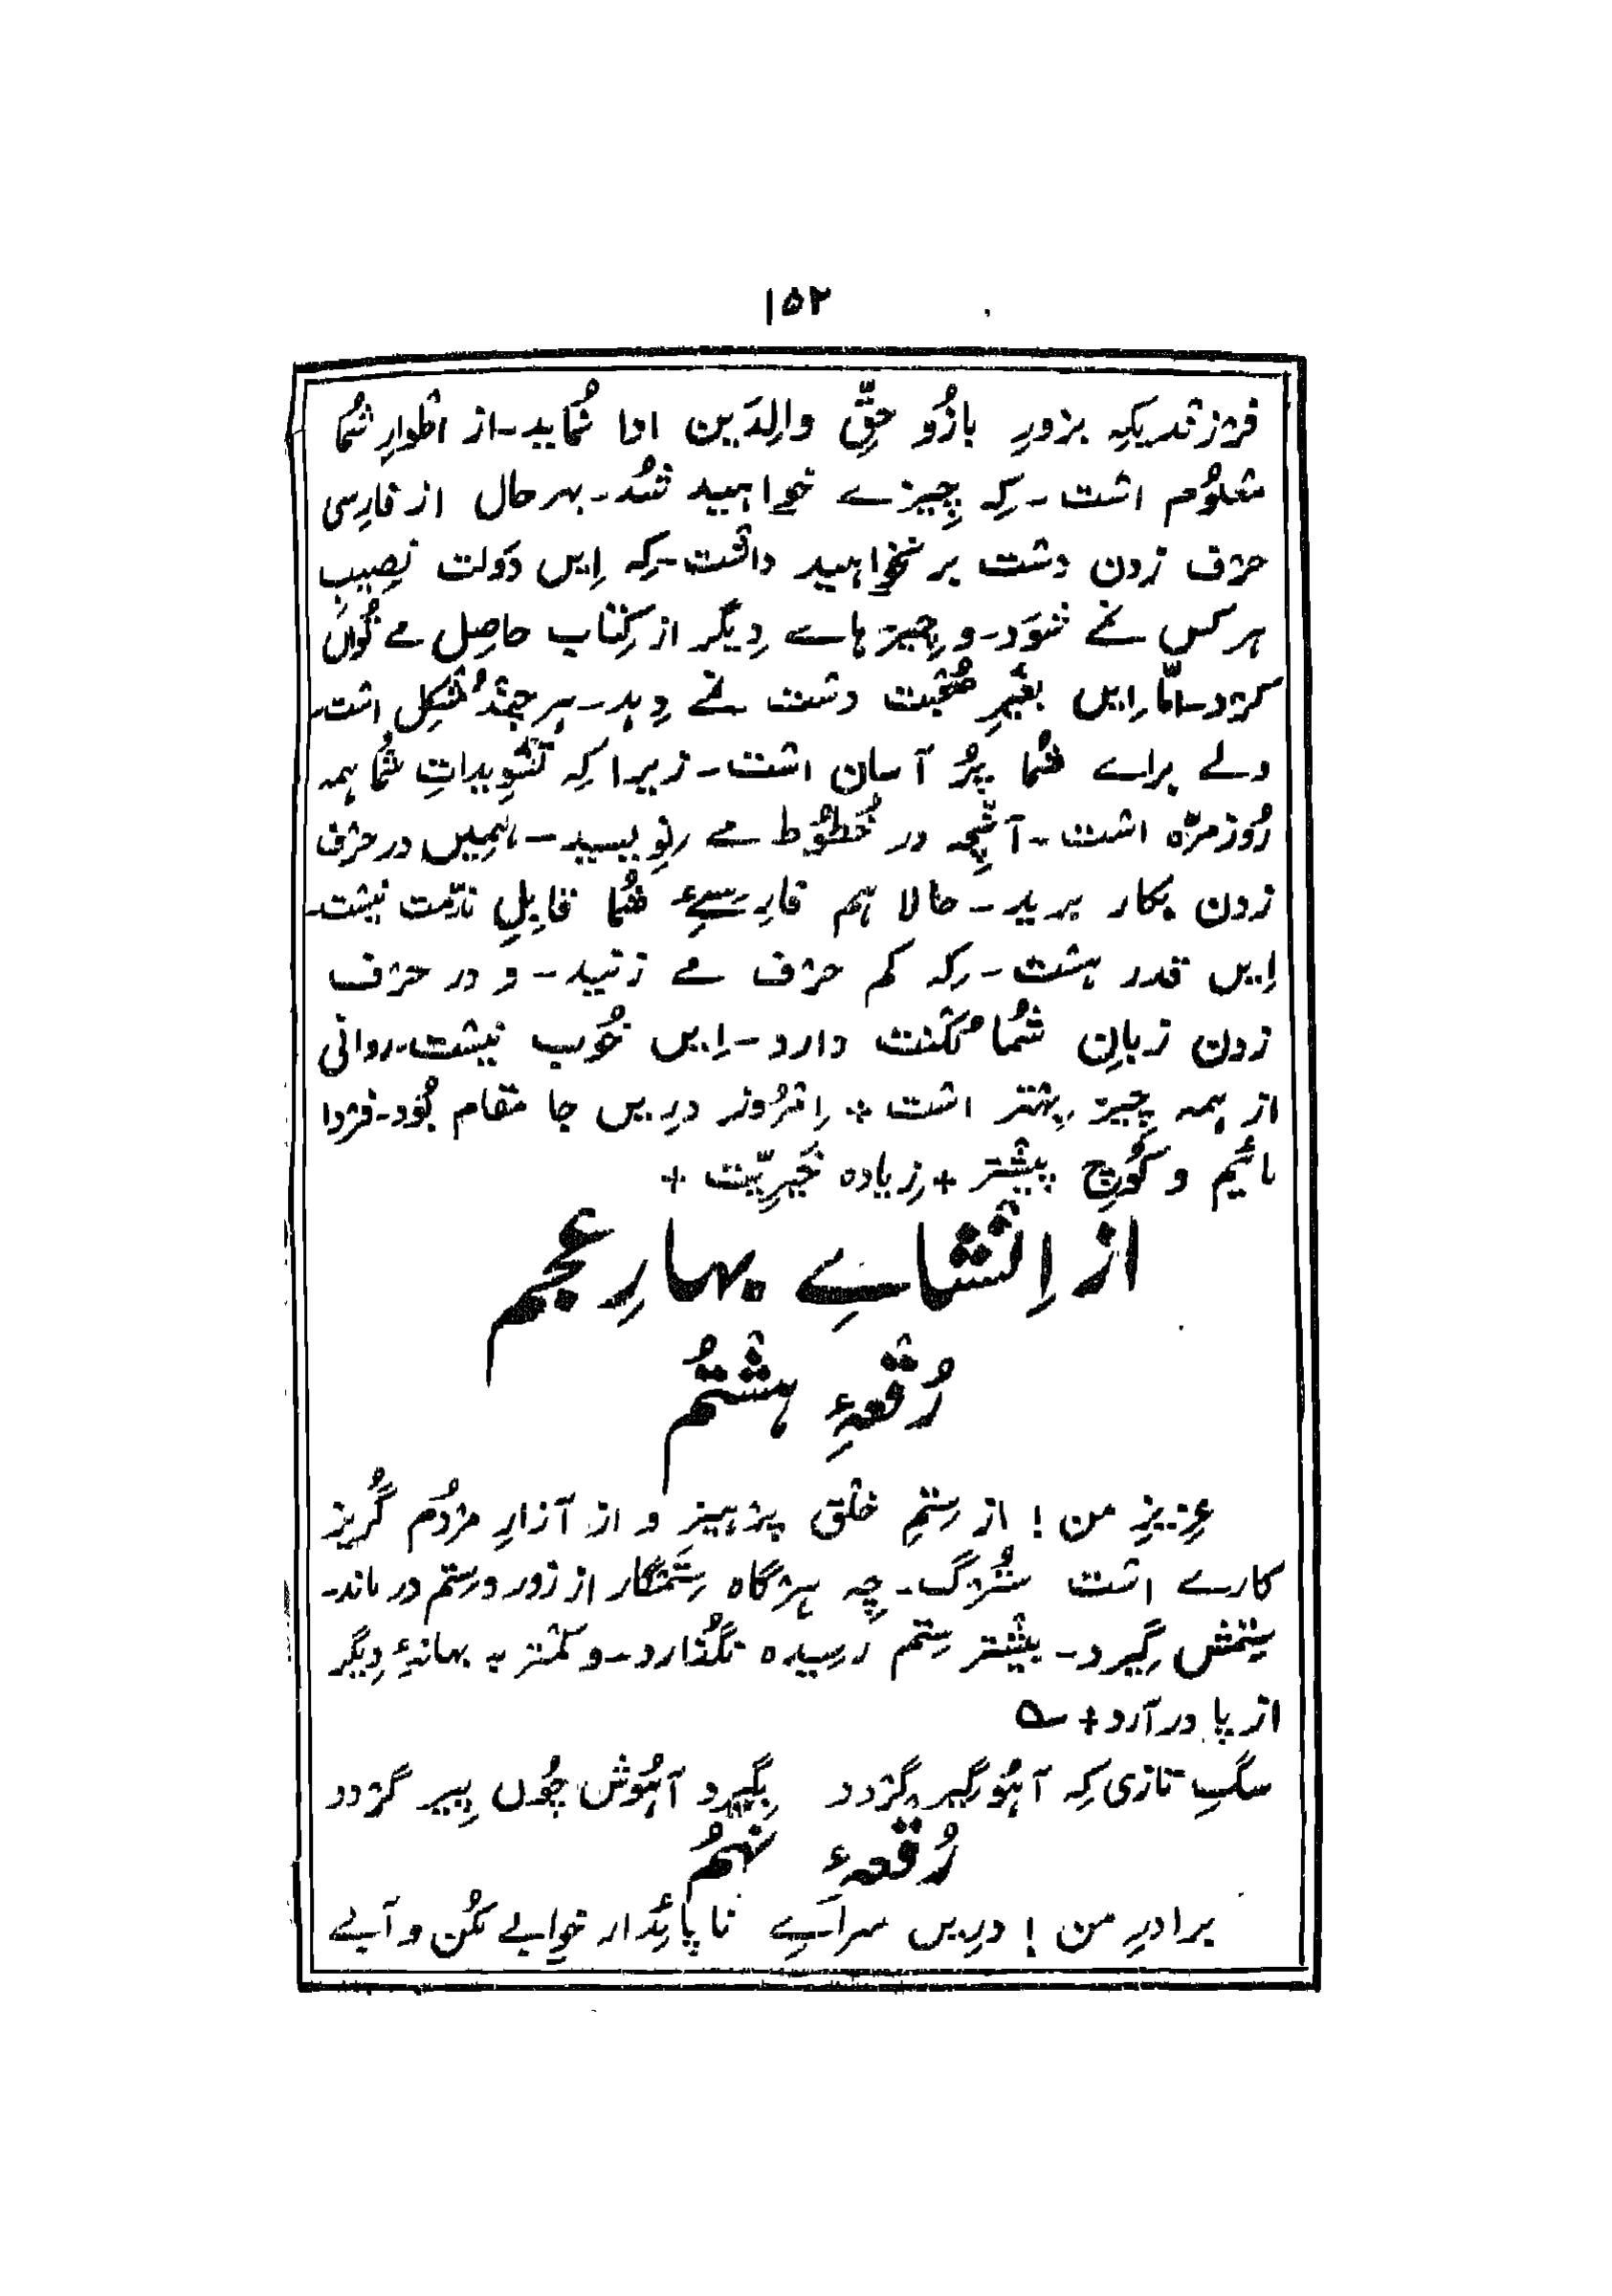 ۱۵۲
فرزندیکه بزورِ بازُو حقِّ والِدَین ادا نُماید۔ از اطْوارِ شُما
معْلُوم اسْت۔ کِہ چِیزے خواہید شُد۔ بہر حال از فارسِی
حرْف زدن دسْت بر نخواہید داشْت۔ کِہ اِیں دَولت نصِیبِ
ہر کس نمے شوَد۔ و چِیز ہاے دِیگر از کِتاب حاصِل مے تُواں
کرْد۔ امّا اِیں بغَیرِ صُحْبت دسْت نمے دِہد۔ ہر چنْد مُشْکِل اسْت۔
ولے براے شُما پُر آسان اسْت۔ زیرا کِہ تسْوِیداتِ شُما ہمہ
رُوزمرّہ اسْت۔ آنْچِہ در خُطُوط مے نِویسید۔ ہمِیں در حرْف
زدن بکار برید۔ حالا ہم فارِسیِٔ شُما قابِلِ ندّمت نیسْت۔
اِیں قدر ہسْت۔ کِہ کم حرْف مے زنید۔ و در حرْف
زدن زبانِ شُما لُکْنت دارد۔ اِیں خُوب نیسْت۔ روانی
از ہمہ چِیز بِہْتر اسْت + اِمْرُوز درِیں جا مقام بُود۔ فرْدا
مائیم و کُوچِ پیشْتر + زِیادہ خَیرِیّت +
از اِنْشاےِ بہارِ عجم
رُقْعۂِ ہشْتُم
عزِیزِ من ! از سِتمِ خلْق پرْہیز و از آزارِ مرْدُم گُریز
کارے اسْت سُتُرْگ۔ چِہ ہرْگاہ سِتمْگار از زور و سِتم در ماند۔
سِتمش گِیرد۔ بیشْتر سِتم رسیدہ نگُذارد۔ و کمْتر بہ بہانۂِ دِیگر
از پا در آرد + ؎
سگِ تازی کِہ آہُو گِیر گرْدد بِگِیرد آہُوش چُوں پِیر گرْدد
رُقْعۂِ نہُم
برادرِ من ! درِیں سراےِ ناپائدار خوابے مکُن و آبے